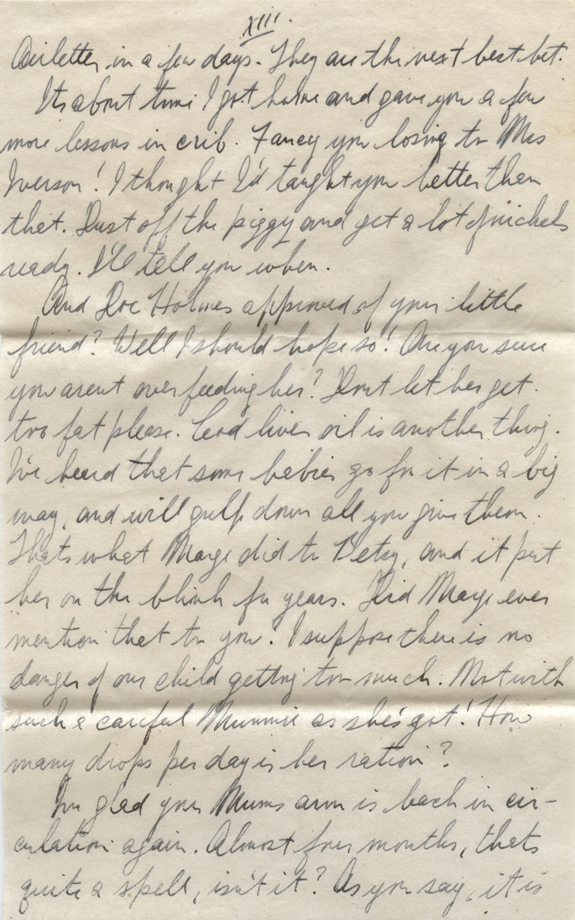 XIII.
Airletter in a few days. They are the next best bet.
Its about time I got home and gave you a few
more lessons in crib. Fancy you losing to Mrs
Iverson! I thought I'd taught you better then
that. Dust off the piggy and get a lot of nickels
ready. I'll tell you when.
And Doc Holmes approved of your little
friend? Well I should hope so! Are you sure
you arent overfeeding her? Dont let her get
too fat please. Cod liver oil is another thing.
I've heard that some babies go for it in a big
way, and will gulp down all you give them.
Thats what Marge did to Betsy, and it put
her on the blink for years. Did Marge ever
mention that to you. I suppose there is no
danger of our child getting too much. Not with
such a careful Mummie as she's got! How
many drops per day is her ration?
I'm glad your Mums arm is back in cir-
culation again. Almost four months, thats
quite a spell, isn't it? As you say, it is